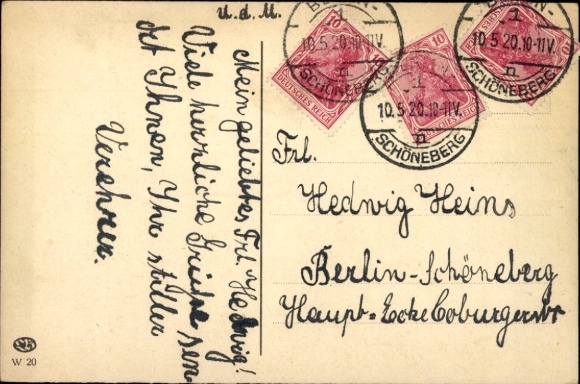 u. d. M.
Mein geliebtes Frl. Hedwig!
Viele herrliche Grüße sen
det Ihnen, Ihr stiller
Verehrer.
10
DEUTSCHES REICH
10
DEUTSCHES REICH
10
BERLIN-
1
10.5.20.10-11V.
n
SCHÖNEBERG
1
10.5.20.10-11V.
n
SCHÖNEBERG
BERLIN-
1
10.5.20.10-11V.
n
SCHÖNEBERG
Frl.
Hedwig Heins
Berlin-Schöneberg
Haupt-Ecke Coburgerstr
W 20